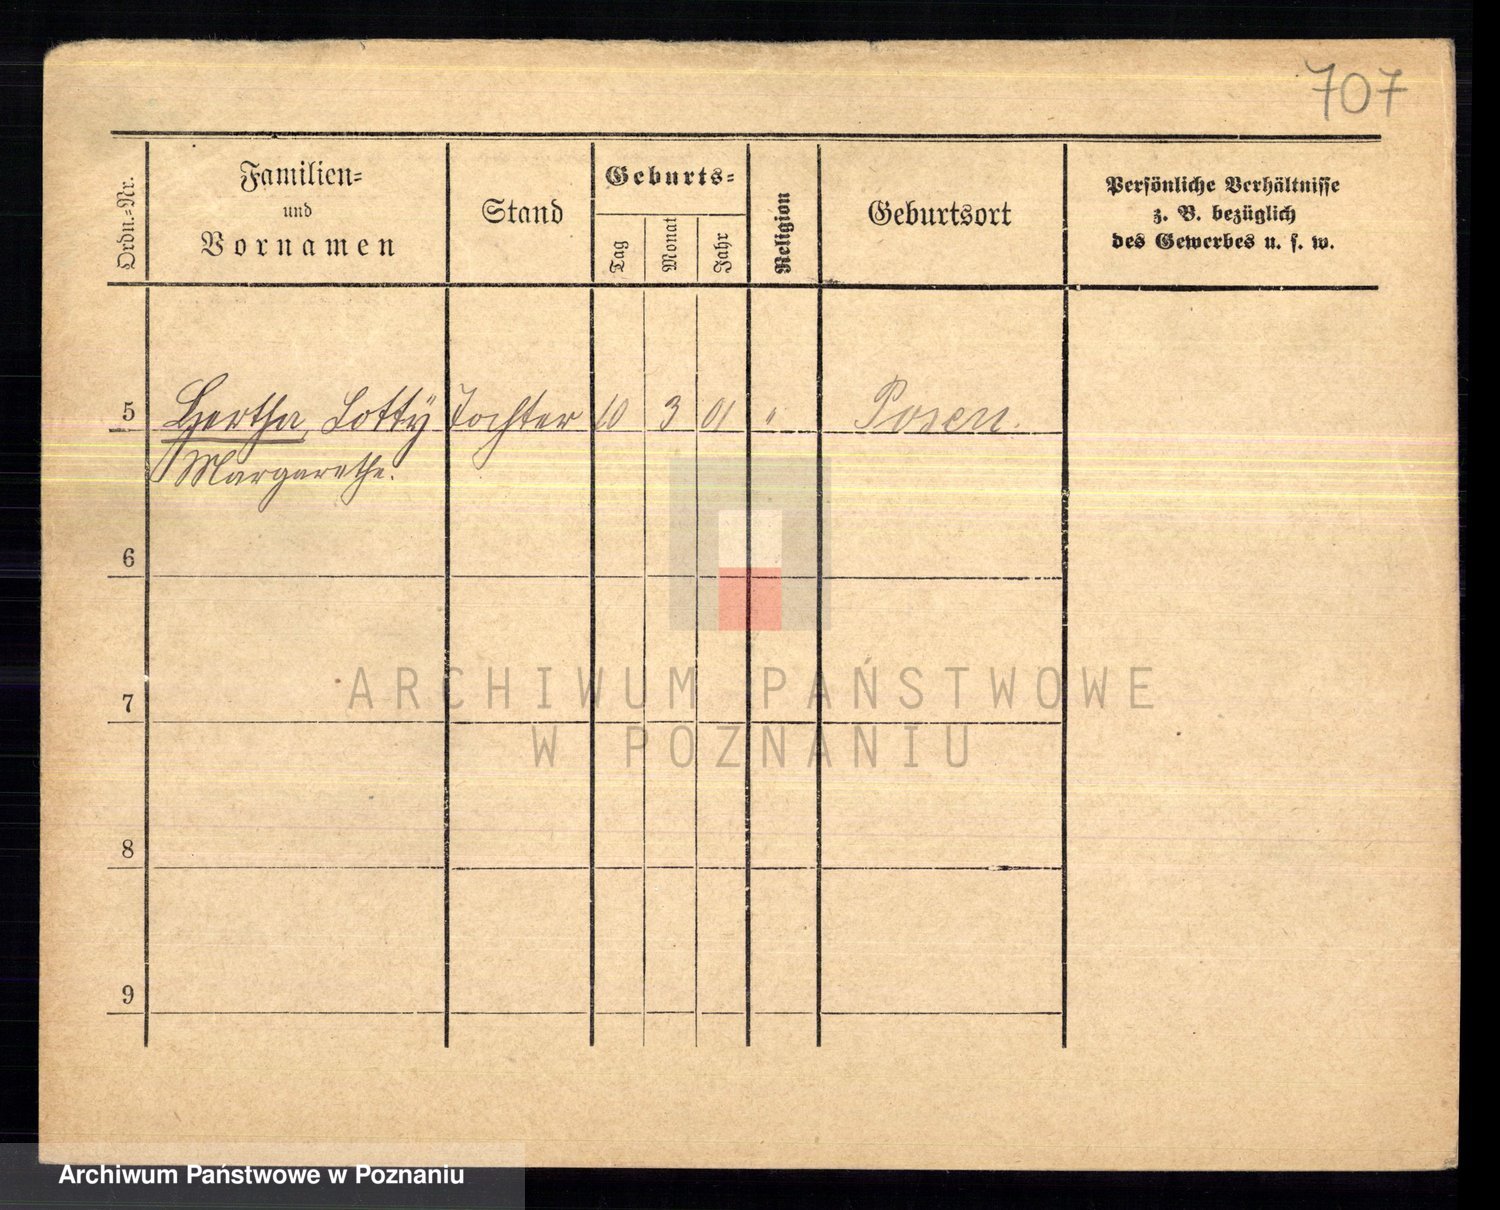 707
Ordn.-Nr.
Familien-
und
Vornamen
Stand
Geburts-
Tag
Monat
Jahr
Religion
Geburtsort
Persönliche Verhältnisse
z. B. bezüglich
des Gewerbes u. s. w.
5 Hertha, Lotty Tochter 10 3 01 " Posen.
Margarethe.
6
7
8
9
ARCHIWUM PAŃSTWOWE
W POZNANIU
Archiwum Państwowe w Poznaniu